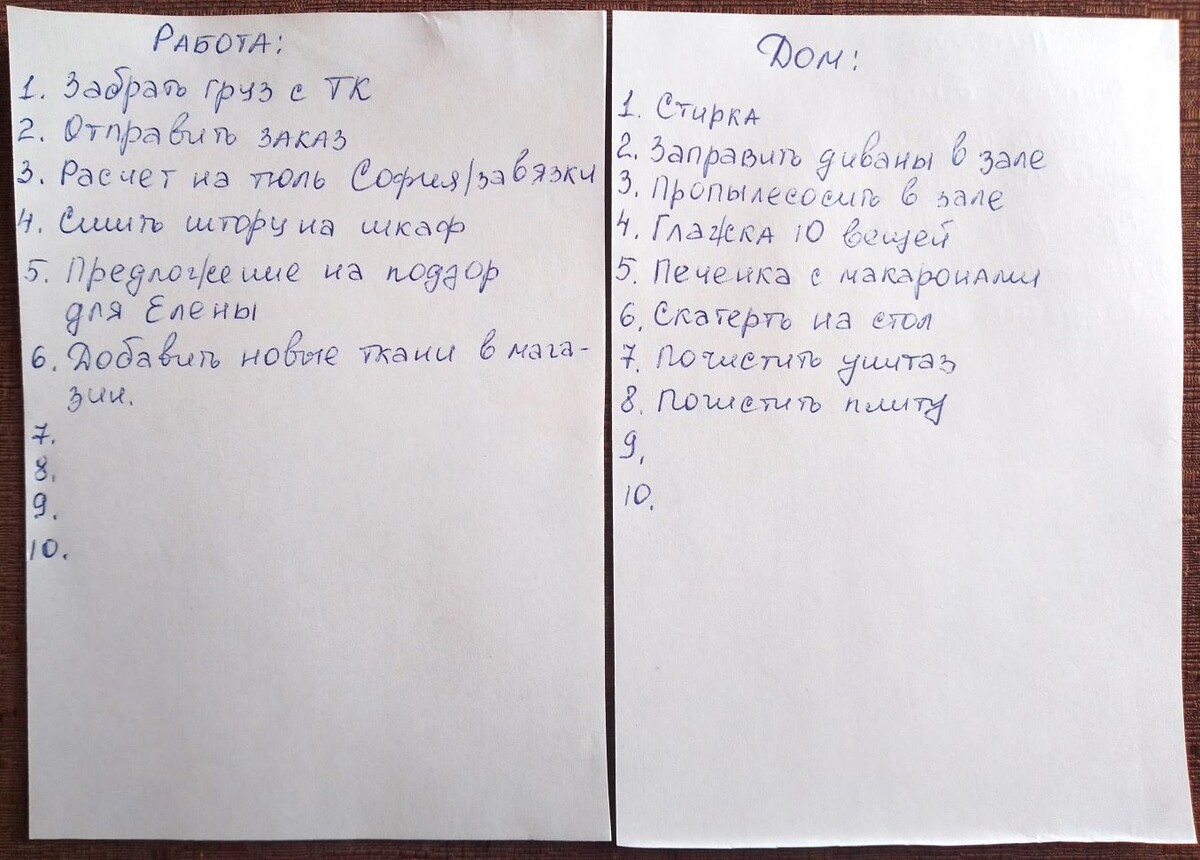 РАБОТА:
1. Забрать груз с ТК
2. Отправить заказ
3. Расчет на тюль София/завязки
4. Сшить штору на шкаф
5. Предложение на подзор
для Елены
6. Добавить новые ткани в мага-
зин.
7.
8.
9.
10.
Дом:
1. Стирка
2. Заправить диваны в зале
3. Пропылесосить в зале
4. Глажка 10 вещей
5. Печенка с макаронами
6. Скатерть на стол
7. Почистить унитаз
8. Почистить плиту
9.
10.